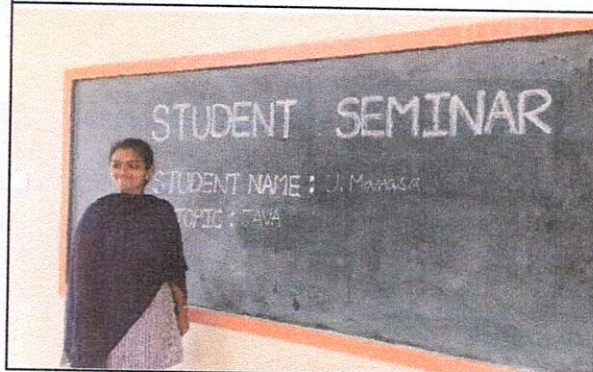 STUDENT SEMINAR
STUDENT NAME : J. Manasa
TOPIC : JAVA